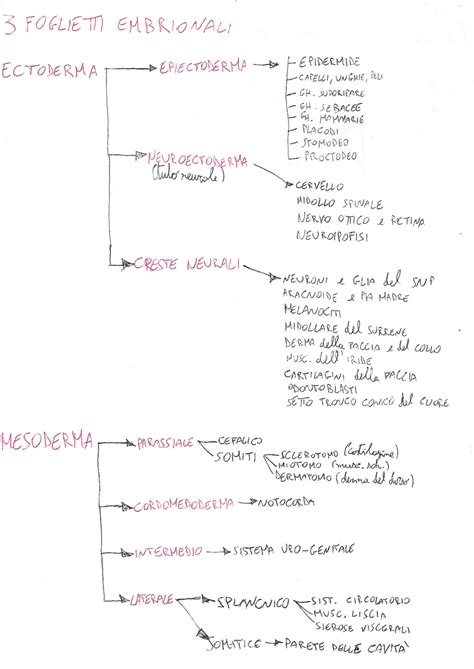 3 FOGLIETTI EMBRIONALI
ECTODERMA
EPIECTODERMA
EPIDERMIDE
CAPELLI, UNGHIE, PELI
GH. SUDORIPARE
GH. SEBACEE
GH. MAMMARIE
PLACODI
STOMODEO
PROCTODEO
NEUROECTODERMA
(tubo neurale)
CERVELLO
MIDOLLO SPINALE
NERVO OTTICO e RETINA
NEUROIPOFISI
CRESTE NEURALI
NEURONI e GLIA del SNP
ARACNOIDE e PIA MADRE
MELANOCITI
MIDOLLARE del SURRENE
DERMA della FACCIA e del COLLO
MUSC. dell'IRIDE
CARTILAGINI della FACCIA
ODONTOBLASTI
SETTO TRONCO CONICO del CUORE
MESODERMA
PARASSIALE
CEFALICO
SOMITI
SCLEROTOMO (cartilagine)
MIOTOMO (musc. sch.)
DERMATOMO (derma del dorso)
CORDOMESODERMA
NOTOCORDA
INTERMEDIO
SISTEMA URO-GENITALE
LATERALE
SPLANCNICO
SIST. CIRCOLATORIO
MUSC. LISCIA
SIEROSE VISCERALI
SOMITICE
PARETE DELLE CAVITÀ